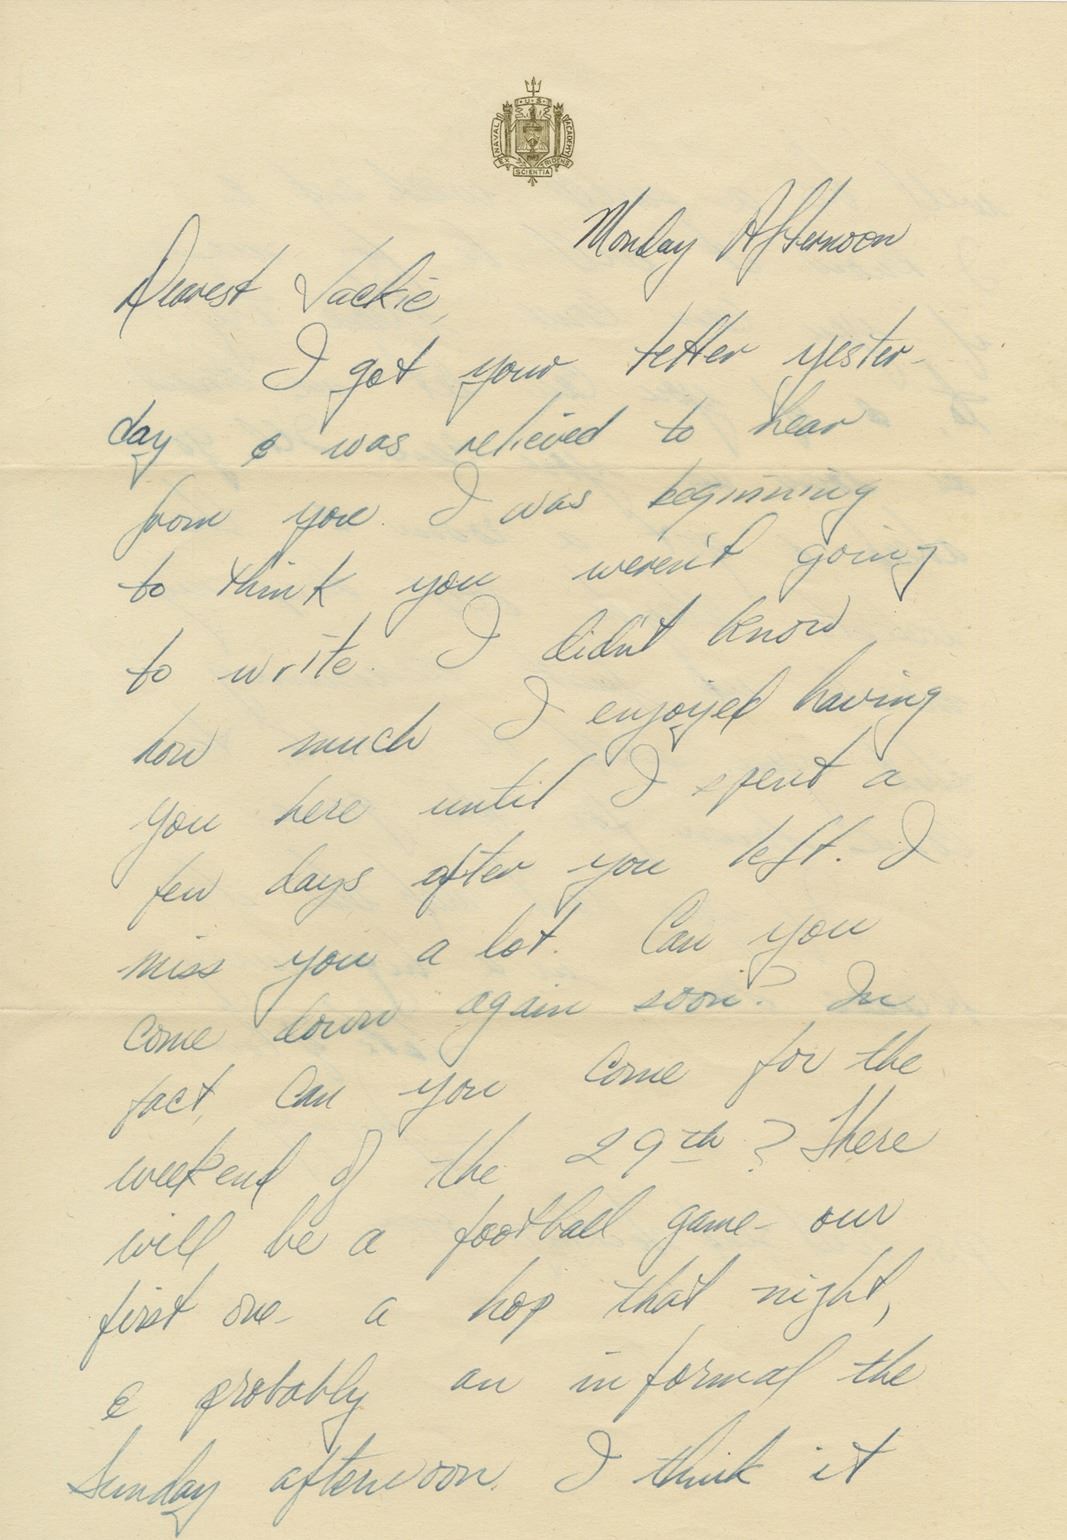 U S
NAVAL ACADEMY
EX SCIENTIA TRIDENS
Monday Afternoon
Dearest Jackie,
I got your letter yester-
day & was relieved to hear
from you. I was beginning
to think you weren't going
to write. I didn't know
how much I enjoyed having
you here until I spent a
few days after you left. I
miss you a lot. Can you
come down again soon? In
fact, can you come for the
weekend of the 29th? There
will be a football game - our
first one - a hop that night,
& probably an informal the
Sunday afternoon. I think it